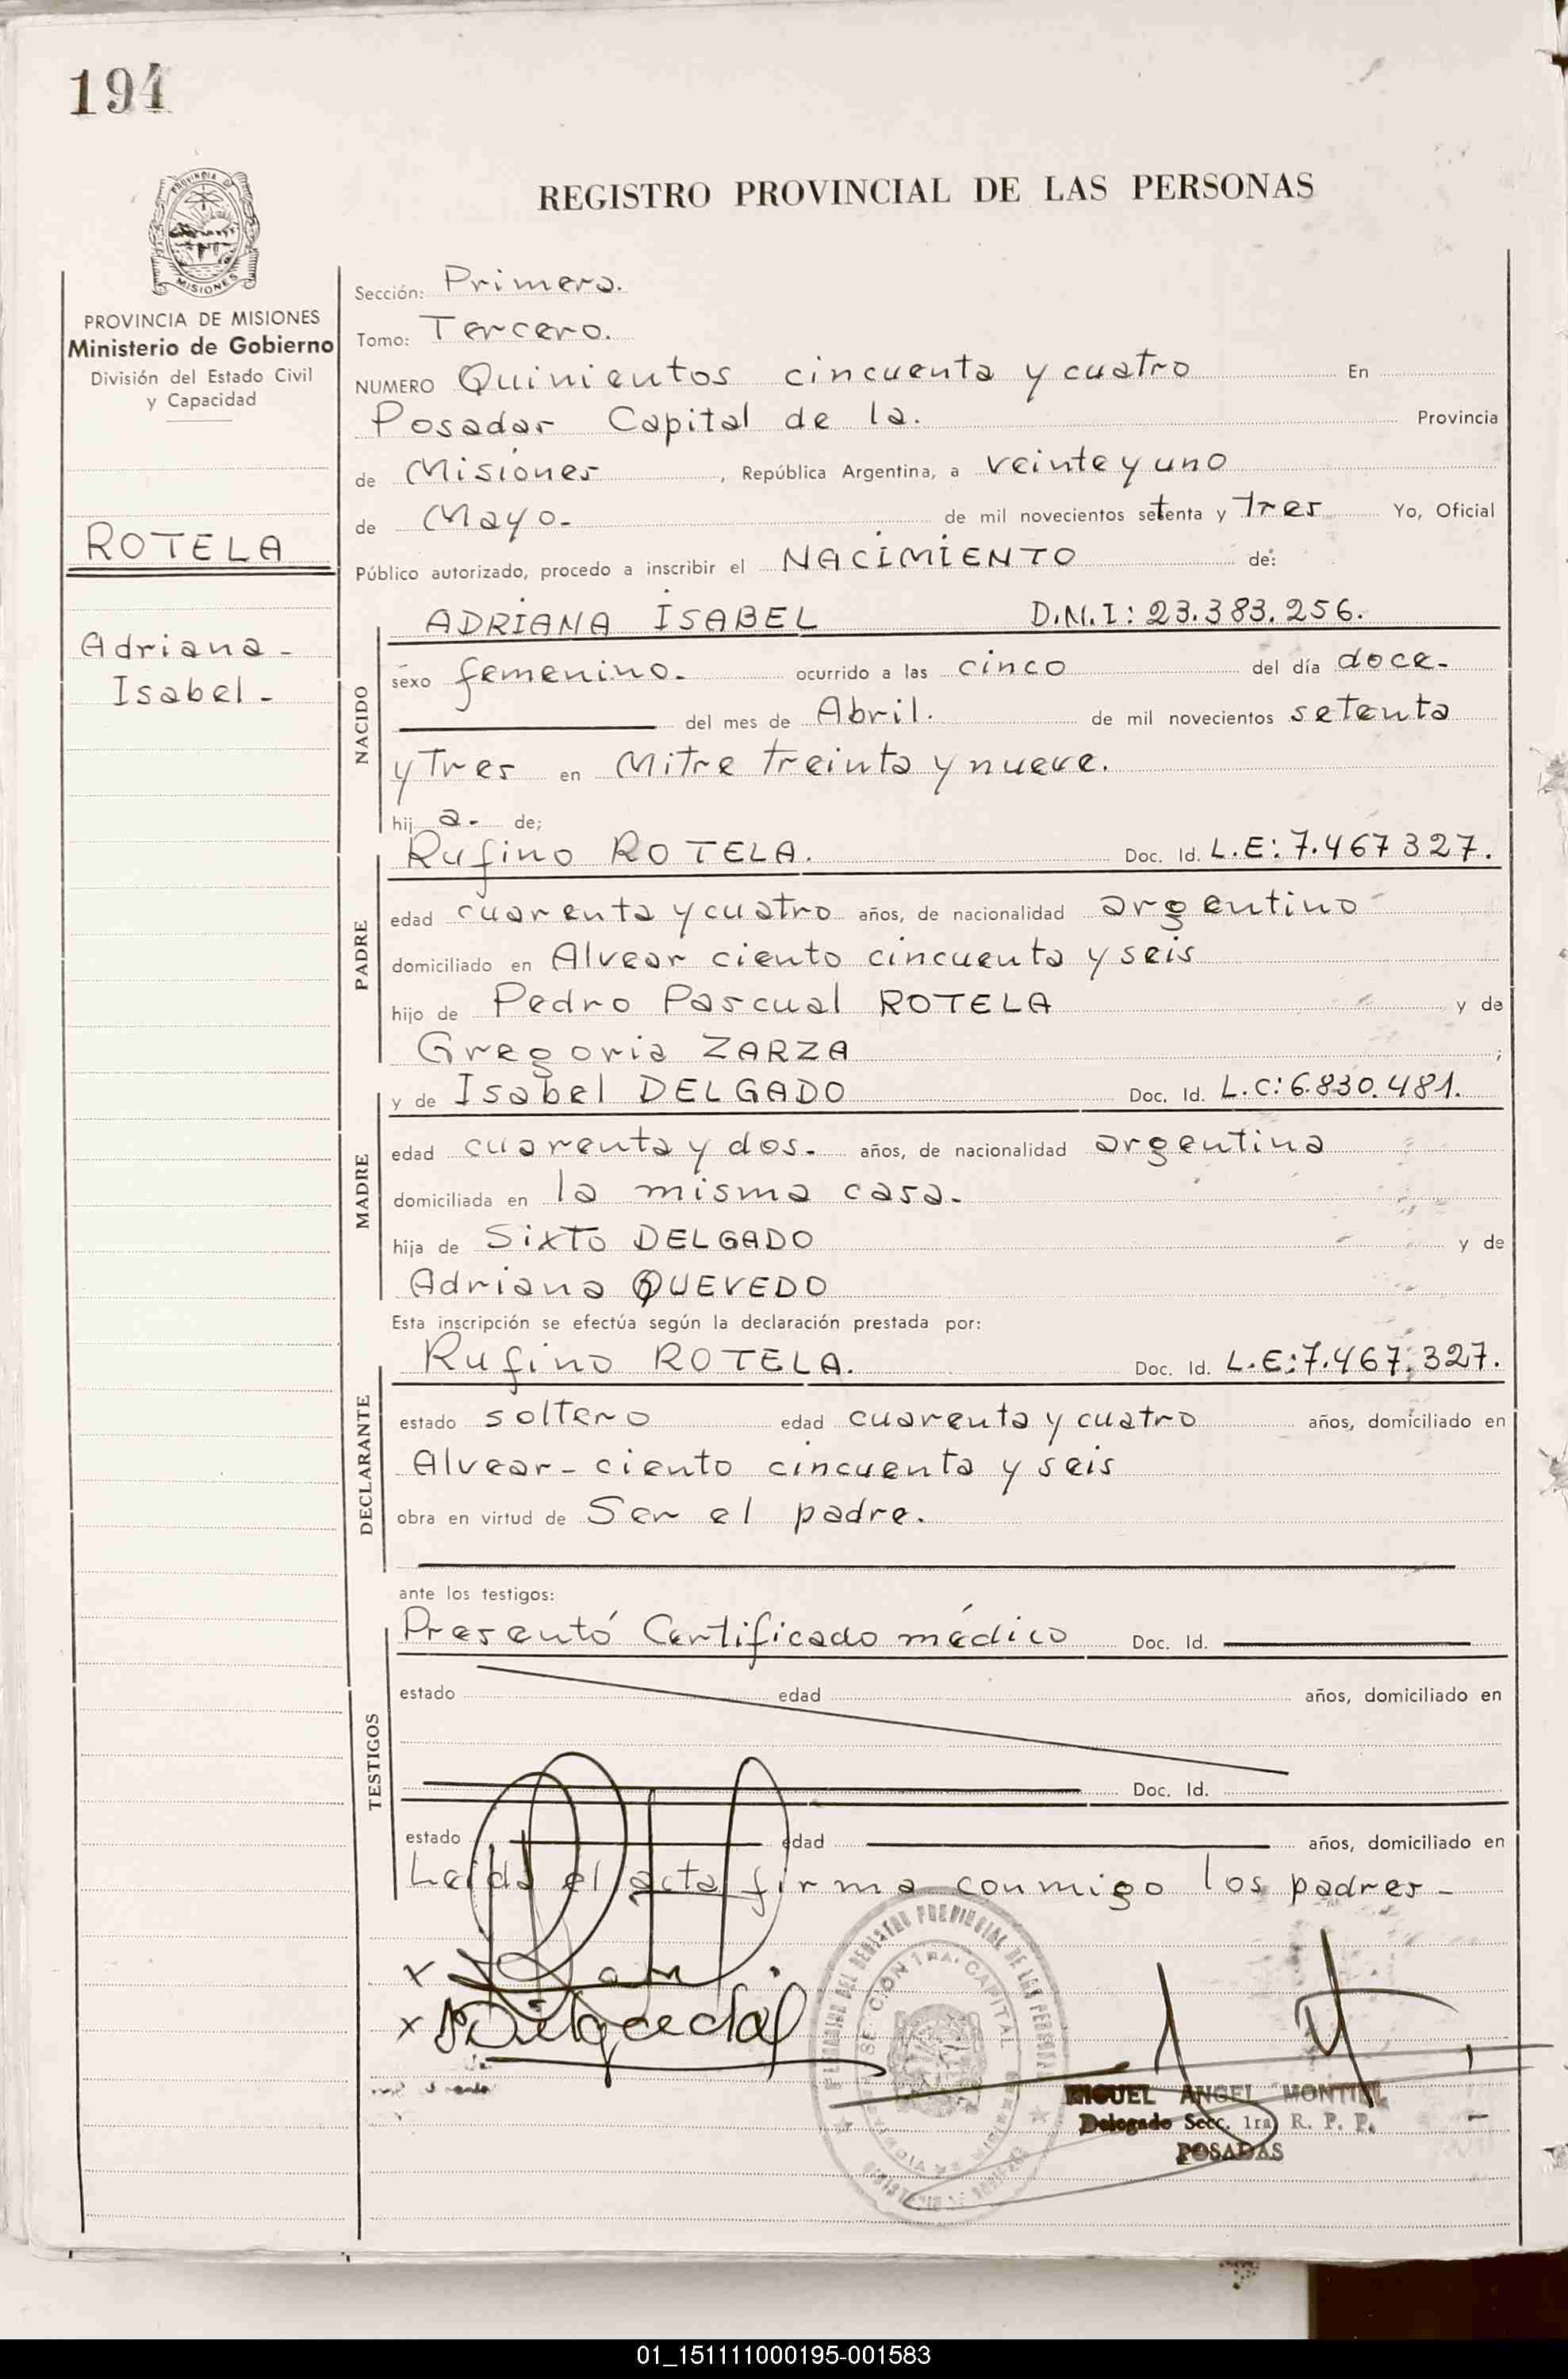 194
PROVINCIA DE
MISIONES
PROVINCIA DE MISIONES
Ministerio de Gobierno
División del Estado Civil
y Capacidad
ROTELA
Adriana -
Isabel -
REGISTRO PROVINCIAL DE LAS PERSONAS
Sección: Primera.
Tomo: Tercero.
NUMERO Quinientos cincuenta y cuatro En
Posadas Capital de la. Provincia
de Misiones, República Argentina, a veinte y uno
de Mayo- de mil novecientos setenta y Tres Yo, Oficial
Público autorizado, procedo a inscribir el NACIMIENTO de:
NACIDO
ADRIANA ISABEL D.N.I: 23.383.256.
sexo femenino. ocurrido a las cinco del día doce-
del mes de Abril. de mil novecientos setenta
y Tres en Mitre treinta y nueve.
hij a- de;
PADRE
Rufino ROTELA. Doc. Id. L.E: 7.467 327.
edad cuarenta y cuatro años, de nacionalidad argentino
domiciliado en Alvear ciento cincuenta y seis
hijo de Pedro Pascual ROTELA y de
Gregoria ZARZA ;
MADRE
y de Isabel DELGADO Doc. Id. L.C: 6.830.481.
edad cuarenta y dos. años, de nacionalidad argentina
domiciliada en la misma casa-
hija de Sixto DELGADO y de
Adriana QUEVEDO
Esta inscripción se efectúa según la declaración prestada por:
DECLARANTE
Rufino ROTELA. Doc. Id. L.E: 7.467.327.
estado soltero edad cuarenta y cuatro años, domiciliado en
Alvear- ciento cincuenta y seis
obra en virtud de Ser el padre.
ante los testigos:
TESTIGOS
Presentó Certificado médico Doc. Id.
estado edad años, domiciliado en
Doc. Id.
estado edad años, domiciliado en
Leída el acta firma conmigo los padres-
x
x
SECCION 1RA. CAPITAL
MIGUEL ANGEL
Delegado Secc. 1ra R. P. P.
POSADAS
01_151111000195-001583